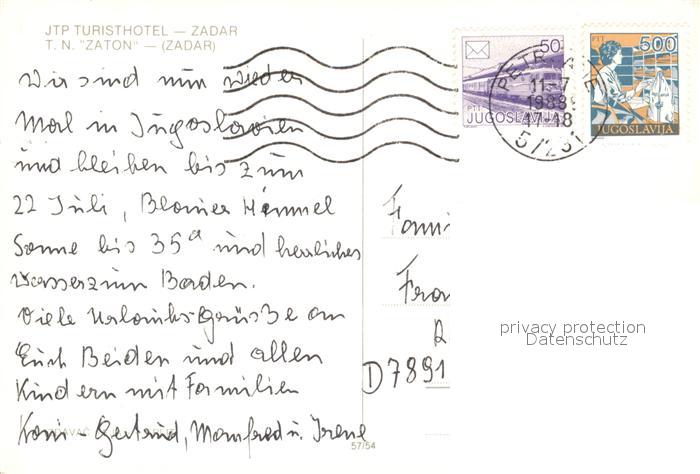 JTP TURISTHOTEL — ZADAR
T. N. "ZATON" — (ZADAR)
Wir sind nun wieder
Mal in Jugoslawien
und bleiben bis zum
22 Juli, Blauer Himmel
Sonne bis 35° und herrliches
Wasser zum Baden.
Viele Urlaubs-Grüsse an
Euch Beiden und allen
Kindern mit Familien
Gertrud, Manfred u. Irene
57/54
50
PTT
JUGOSLAVIJA
11-7
1988
17-18
PTT
500
JUGOSLAVIJA
Fami
Frau
D7891
privacy protection
Datenschutz